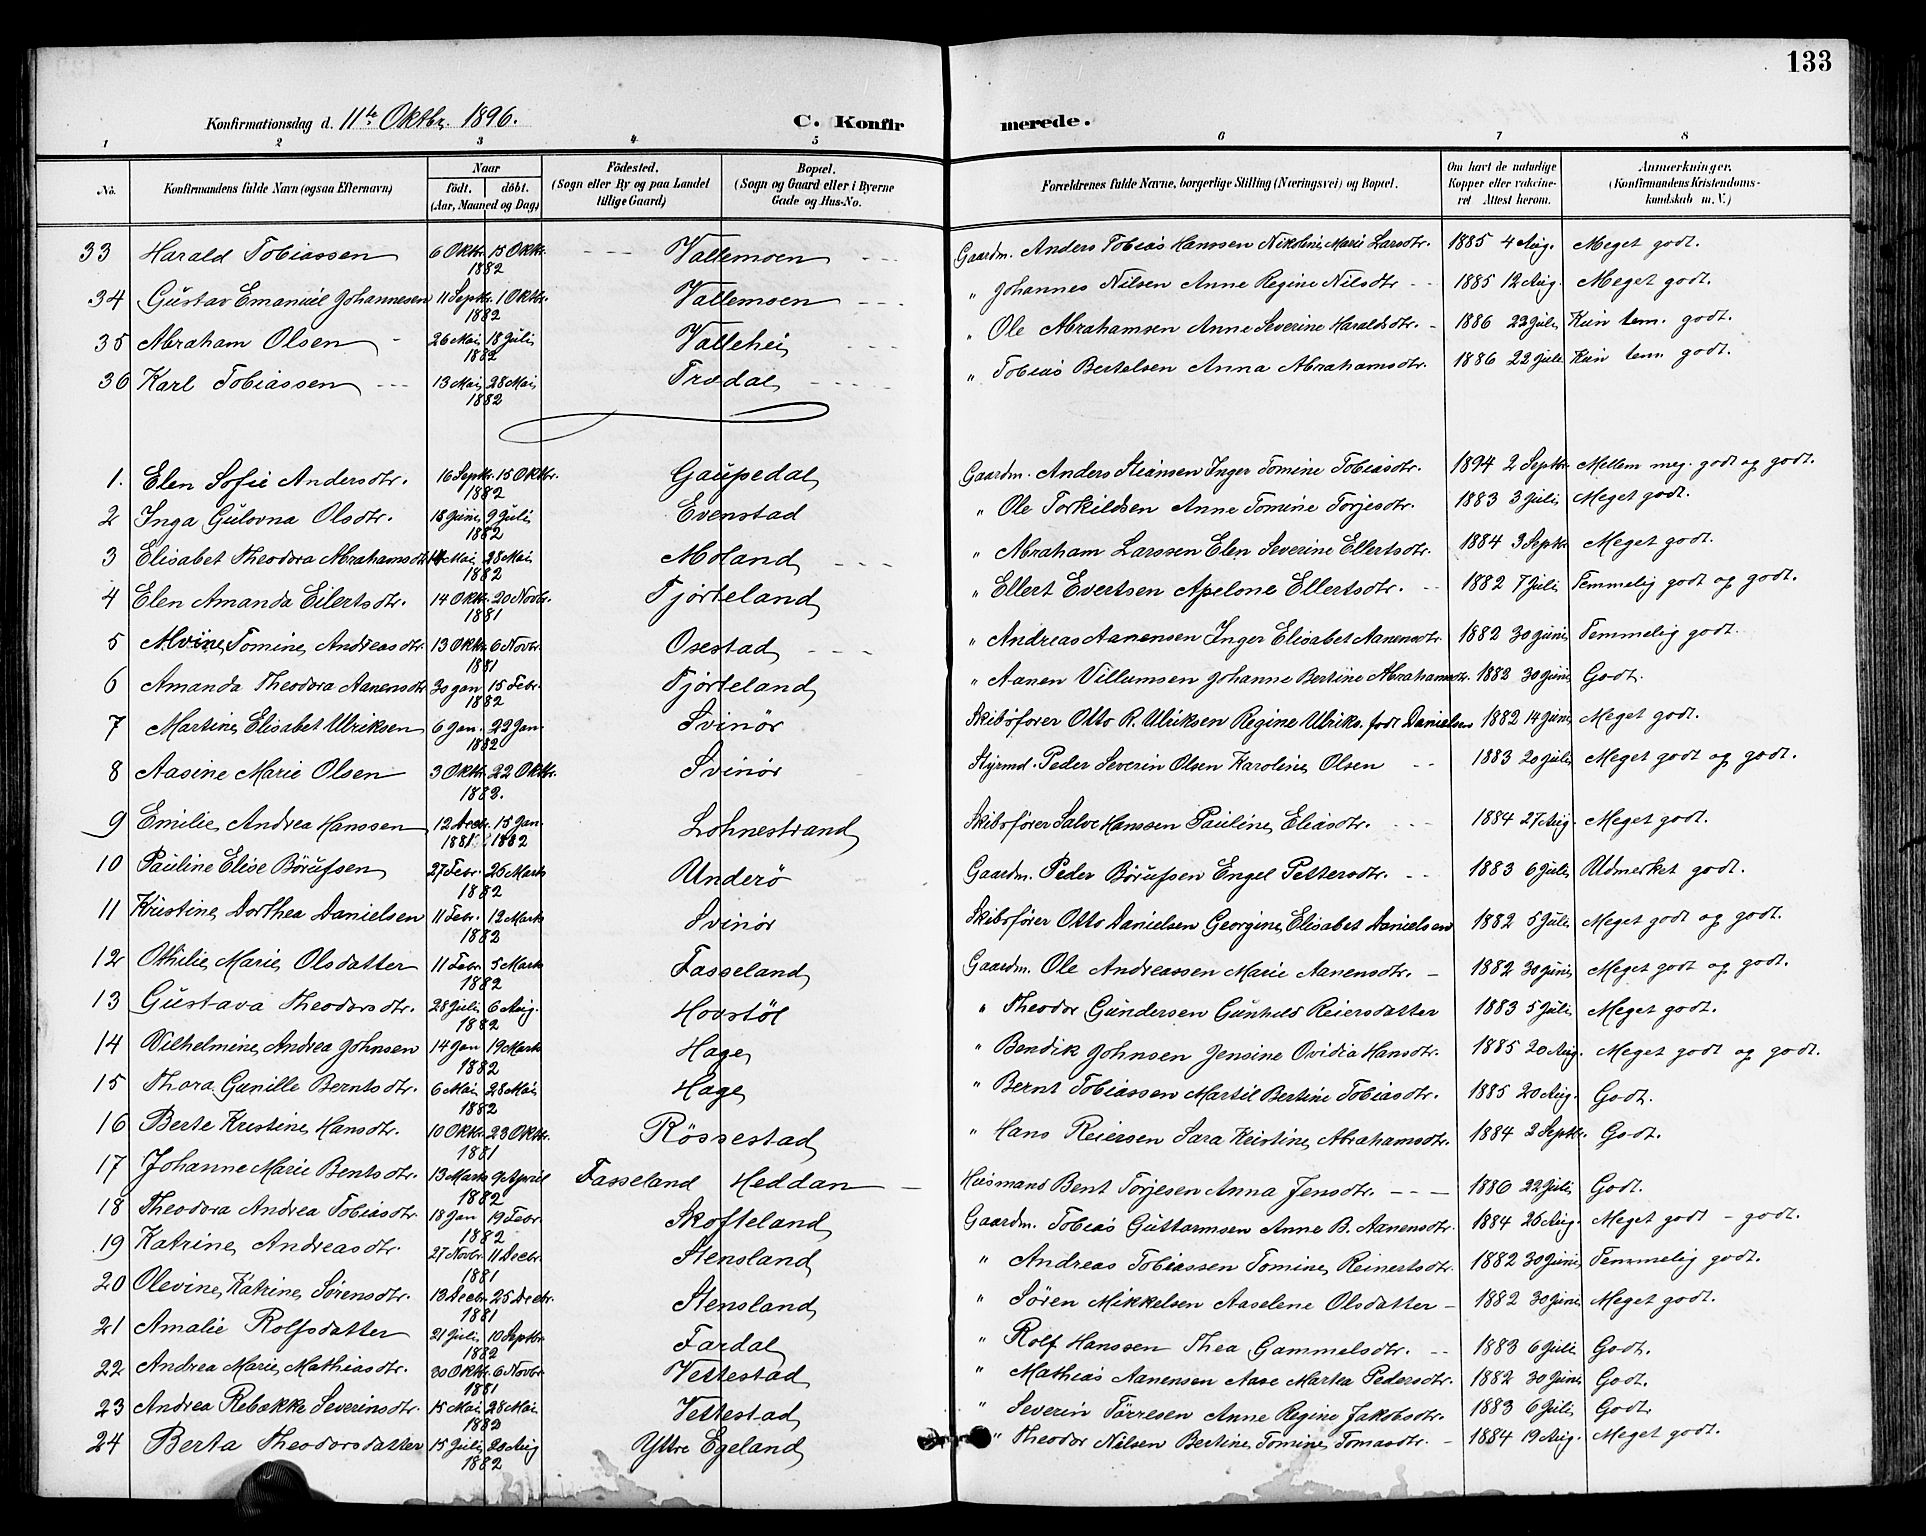 133
Konfirmationsdag d. 11te Oktbr. 1896. C. Konfirmerede.
1 2 3 4 5 6 7 8
No. Konfirmandens fulde Navn (ogsaa Efternavn) Naar födt. döbt. (Aar, Maaned og Dag) Födested. (Sogn eller By og paa Landet tillige Gaard) Bopæl. (Sogn og Gaard eller i Byerne Gade og Hus-No. Forældrenes fulde Navne, borgerlige Stilling (Næringsvei) og Bopæl. Om havt de naturlige Kopper eller vaccineret Attest herom. Anmerkninger. (Konfirmandens Kristendomskundskab m. V.)
33 Harald Tobiassen 6 Oktbr. 15 Oktbr. 1882 Vallemoen Gaardm. Anders Tobias Hanssen Nikoline Marie Larsdtr. 1885 4 Aug. Meget godt.
34 Gustav Emanuel Johannesen 11 Septbr. 1 Oktbr. 1882 Vallemoen " Johannes Nilsen Anne Regine Nilsdtr 1885 12 Aug. Meget godt.
35 Abraham Olsen 26 Mai 18 Juli 1882 Vallehei " Ole Abrahamsen Anne Severine Haraldsdtr. 1886 22 Juli Kun tem. godt.
36 Karl Tobiassen 13 Mai 28 Mai 1882 Trodal " Tobias Bertelsen Anna Abrahamsdtr. 1886 22 Juli Kun tem godt.
1. Elen Sofie Andersdtr. 16 Septbr. 15 Oktbr. 1882 Gaupedal Gaardm. Anders Stiansen Inger Tomine Tobiasdtr. 1894 2 Septbr. Mellem meg. godt og godt.
2 Inga Gulovna Olsdtr. 18 Juni 9 Juli 1882 Evenstad " Ole Torkildsen Anne Tomine Torjesdtr. 1883 3 Juli Meget godt.
3 Elisabet Theodora Abrahamsdtr 14 Mai 28 Mai 1882 Moland " Abraham Larssen Elen Severine Ellertsdtr. 1884 3 Septbr Meget godt.
4 Elen Amanda Eilertsdtr. 14 Oktbr. 20 Novbr. 1881 Fjorteland " Ellert Evertsen Apelone Ellertsdtr. 1882 7 Juli Temmelig godt og godt.
5 Alvine Tomine Andreasdtr. 13 Oktbr. 6 Novbr. 1881 Osestad " Andreas Aanensen Inger Elisabet Aanensdtr 1882 30 Juni Temmelig godt.
6 Amanda Theodora Aanensdtr 30 Jan 15 Febr. 1882 Fjorteland " Aanen Villumsen Johanne Bertine Abrahamsdtr. 1882 30 Juni Godt.
7 Martine Elisabet Ulriksen 6 Jan. 22 Jan. 1882 Svinör Skibsfører Otto R. Ulriksen Regine Ulriks. født Danielsen 1882 14 Juni Meget godt.
8 Aasine Marie Olsen 3 Oktbr. 22 Oktbr. 1882. Svinör Styrmd. Peder Severin Olsen Karoline Olsen 1883 20 Juli Meget godt og godt.
9 Emilie Andrea Hanssen 12 Decbr. 15 Jan. 1881 1882 Lohnestrand Skibsfører Salve Hanssen Pauline Eliasdtr. 1884 27 Aug. Meget godt.
10 Pauline Elise Börufsen 27 Febr. 26 Marts 1882 Underö Gaardm. Peder Börufsen Engel Pettersdtr. 1883 6 Juli Udmerket godt.
11 Kristine Dorthea Danielsen 11 Febr. 12 Marts 1882 Svinör Skibsfører Otto Danielsen Georgine Elisabet Danielsen 1882 5 Juli Meget godt og godt.
12 Othilie Marie Olsdatter 11 Febr 5 Marts 1882 Fasseland Gaardm. Ole Andreassen Marie Aanensdtr. 1882 30 Juni Meget godt og godt.
13 Gustava Theodorsdtr. 28 Juli 6 Aug. 1882 Hovstöl " Theodor Gundersen Gunhild Reiersdatter 1883 5 Juli Meget godt.
14 Vilhelmine Andrea Johnsen 14 Jan 19 Marts 1882 Hage " Bendik Johnsen Jensine Ovidia Hansdtr. 1885 20 Aug. Meget godt og godt.
15 Thora Gunille Berntsdtr. 6 Mai 28 Mai 1882 Hage " Bernt Tobiassen Martil Bertine Tobiasdtr. 1885 20 Aug. Godt.
16 Berte Kristine Hansdtr. 10 Oktbr. 23 Oktbr. 1881 Rössestad " Hans Reiersen Sara Kristine Abrahamsdtr. 1884 2 Septbr. Godt.
17 Johanne Marie Bentsdtr. 13 Marts 9 April 1882 Fasseland Heddan Husmand Bent Torjesen Anna Jensdtr. 1886 22 Juli Godt.
18 Theodora Andrea Tobiasdtr. 18 Jan 19 Febr. 1882 Skofteland Gaardm. Tobias Guttormsen Anne B. Aanensdtr. 1884 26 Aug. Meget godt - godt.
19 Katrine Andreasdtr. 27 Novbr. 11 Decbr. 1881 Stensland " Andreas Tobiassen Tomine Reinertsdtr. 1882 30 Juni Temmelig godt.
20 Olevine Katrine Sörensdtr. 13 Decbr. 25 Decbr. 1881 Stensland " Sören Mikkelsen Aaselene Olsdatter 1882 30 Juni Meget godt.
21 Amalie Rolfsdatter 21 Juli 10 Septbr 1882 Fardal " Rolf Hanssen Thea Gammelsdtr. 1883 6 Juli Godt.
22 Andrea Marie Mathiasdtr. 30 Oktbr. 6 Novbr. 1881 Vettestad " Mathias Aanensen Aase Martea Pedersdtr. 1882 30 Juni Godt.
23 Andrea Rebække Severinsdtr. 15 Mai 28 Mai 1882 Vettestad " Severin Törresen Anne Regine Jakobsdtr. 1883 6 Juli Godt.
24 Berta Theodorsdatter 15 Juli 20 Aug 1882 Yttre Egeland " Theodor Nilsen Bertine Tomine Tomasdtr. 1884 19 Aug. Meget godt.